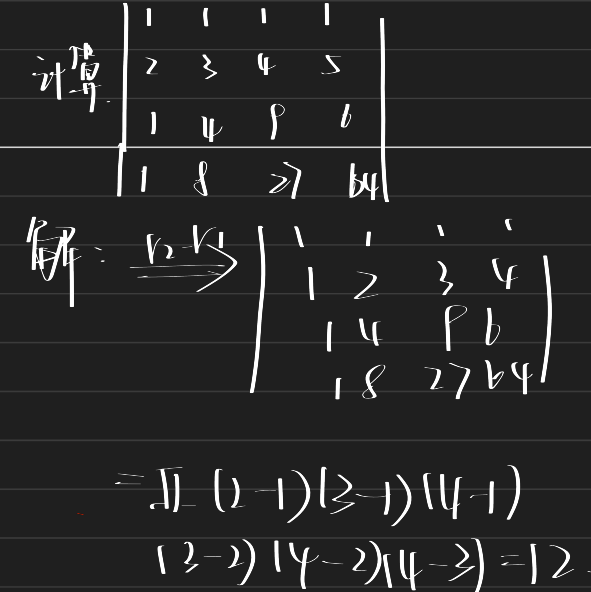 计算 | 1 1 1 1 |
| 2 3 4 5 |
| 1 4 9 6 |
| 1 8 27 64 |
解: r2-r1 → | 1 1 1 1 |
| 1 2 3 4 |
| 1 4 9 6 |
| 1 8 27 64 |
= Π (2-1)(3-1)(4-1)
(3-2)(4-2)(4-3)=12